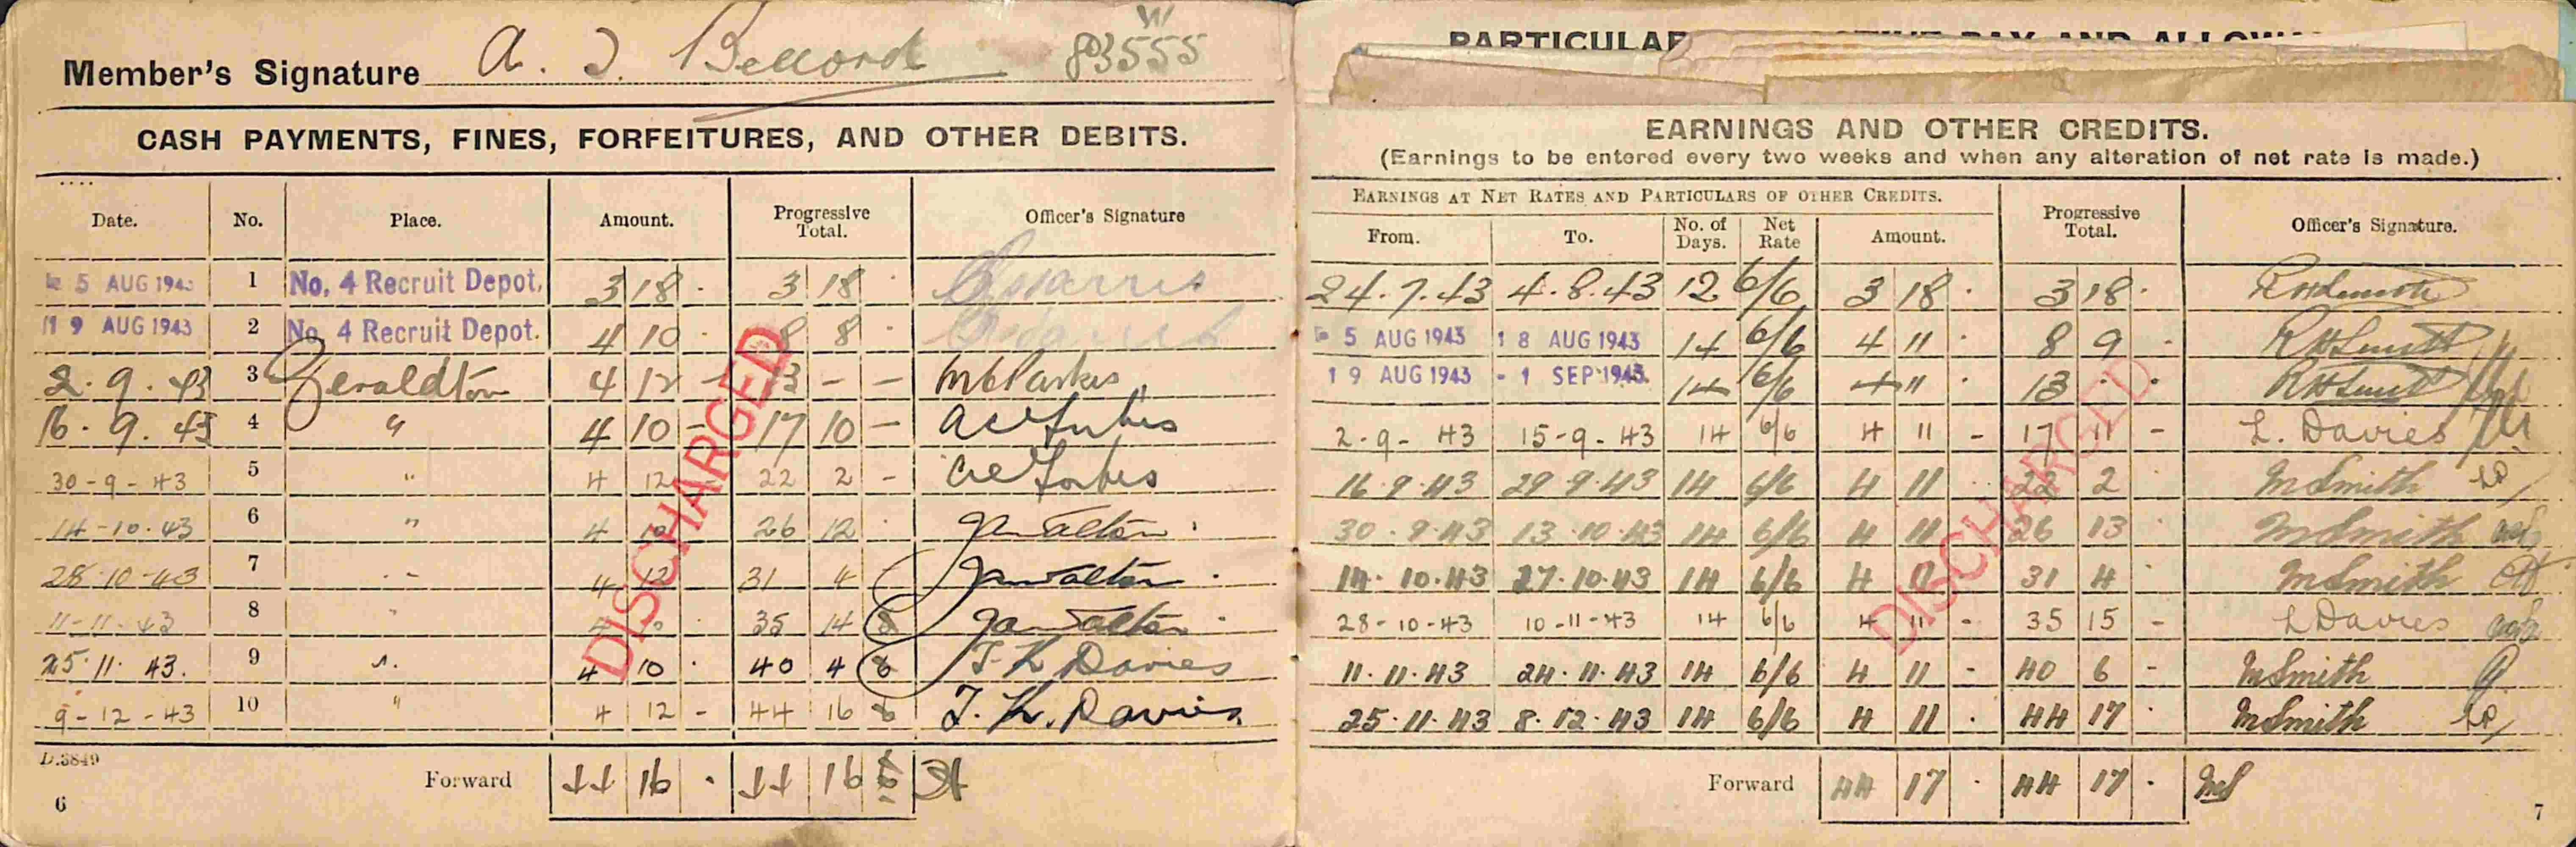 W
Member's Signature A. J. Bellord 83555
CASH PAYMENTS, FINES, FORFEITURES, AND OTHER DEBITS.
Date. No. Place. Amount. Progressive Total. Officer's Signature
5 AUG 194 1 No. 4 Recruit Depot. 3 18 · 3 18 ·
19 AUG 1943 2 No. 4 Recruit Depot. 4 10 · 8 8 ·
2.9.43 3 Geraldton 4 12 - 13 - - M C Parkes
16.9.43 4 " 4 10 - 17 10 - A C Forbes
30-9-43 5 " 4 12 - 22 2 - A C Forbes
14-10-43 6 " 4 10 · 26 12 · J W Alton
28-10-43 7 " 4 12 31 4 - J W Alton
11-11-43 8 " 4 10 · 35 14 J W Alton
25.11.43. 9 " 4 10 · 40 4 T. K. Davies
9-12-43 10 " 4 12 - 44 16 T. K. Davies
DISCHARGED
D.3849 Forward 44 16 · 44 16
6
PARTICULAR PAY AND
EARNINGS AND OTHER CREDITS.
(Earnings to be entered every two weeks and when any alteration of net rate is made.)
EARNINGS AT NET RATES AND PARTICULARS OF OTHER CREDITS. Progressive Total. Officer's Signature.
From. To. No. of Days. Net Rate Amount.
24.7.43 4.8.43 12 6/6 3 18 · 3 18 ·
5 AUG 1943 18 AUG 1943 14 6/6 4 11 · 8 9 · R H Smith
19 AUG 1943 - 1 SEP 1943 14 6/6 4 11 · 13 · · R H Smith
2-9-43 15-9-43 14 6/6 4 11 - 17 11 - L. Davies
16.9.43 29.9.43 14 6/6 4 11 22 2 · M Smith
30.9.43 13.10.43 14 6/6 4 11 26 13 · M Smith
14.10.43 27.10.43 14 6/6 4 11 31 4 · M Smith
28-10-43 10-11-43 14 6/6 4 11 - 35 15 - L Davies
11.11.43 24.11.43 14 6/6 4 11 - 40 6 - M Smith
25.11.43 8.12.43 14 6/6 4 11 · 44 17 · M Smith
DISCHARGED
Forward 44 17 · 44 17 · MS
7